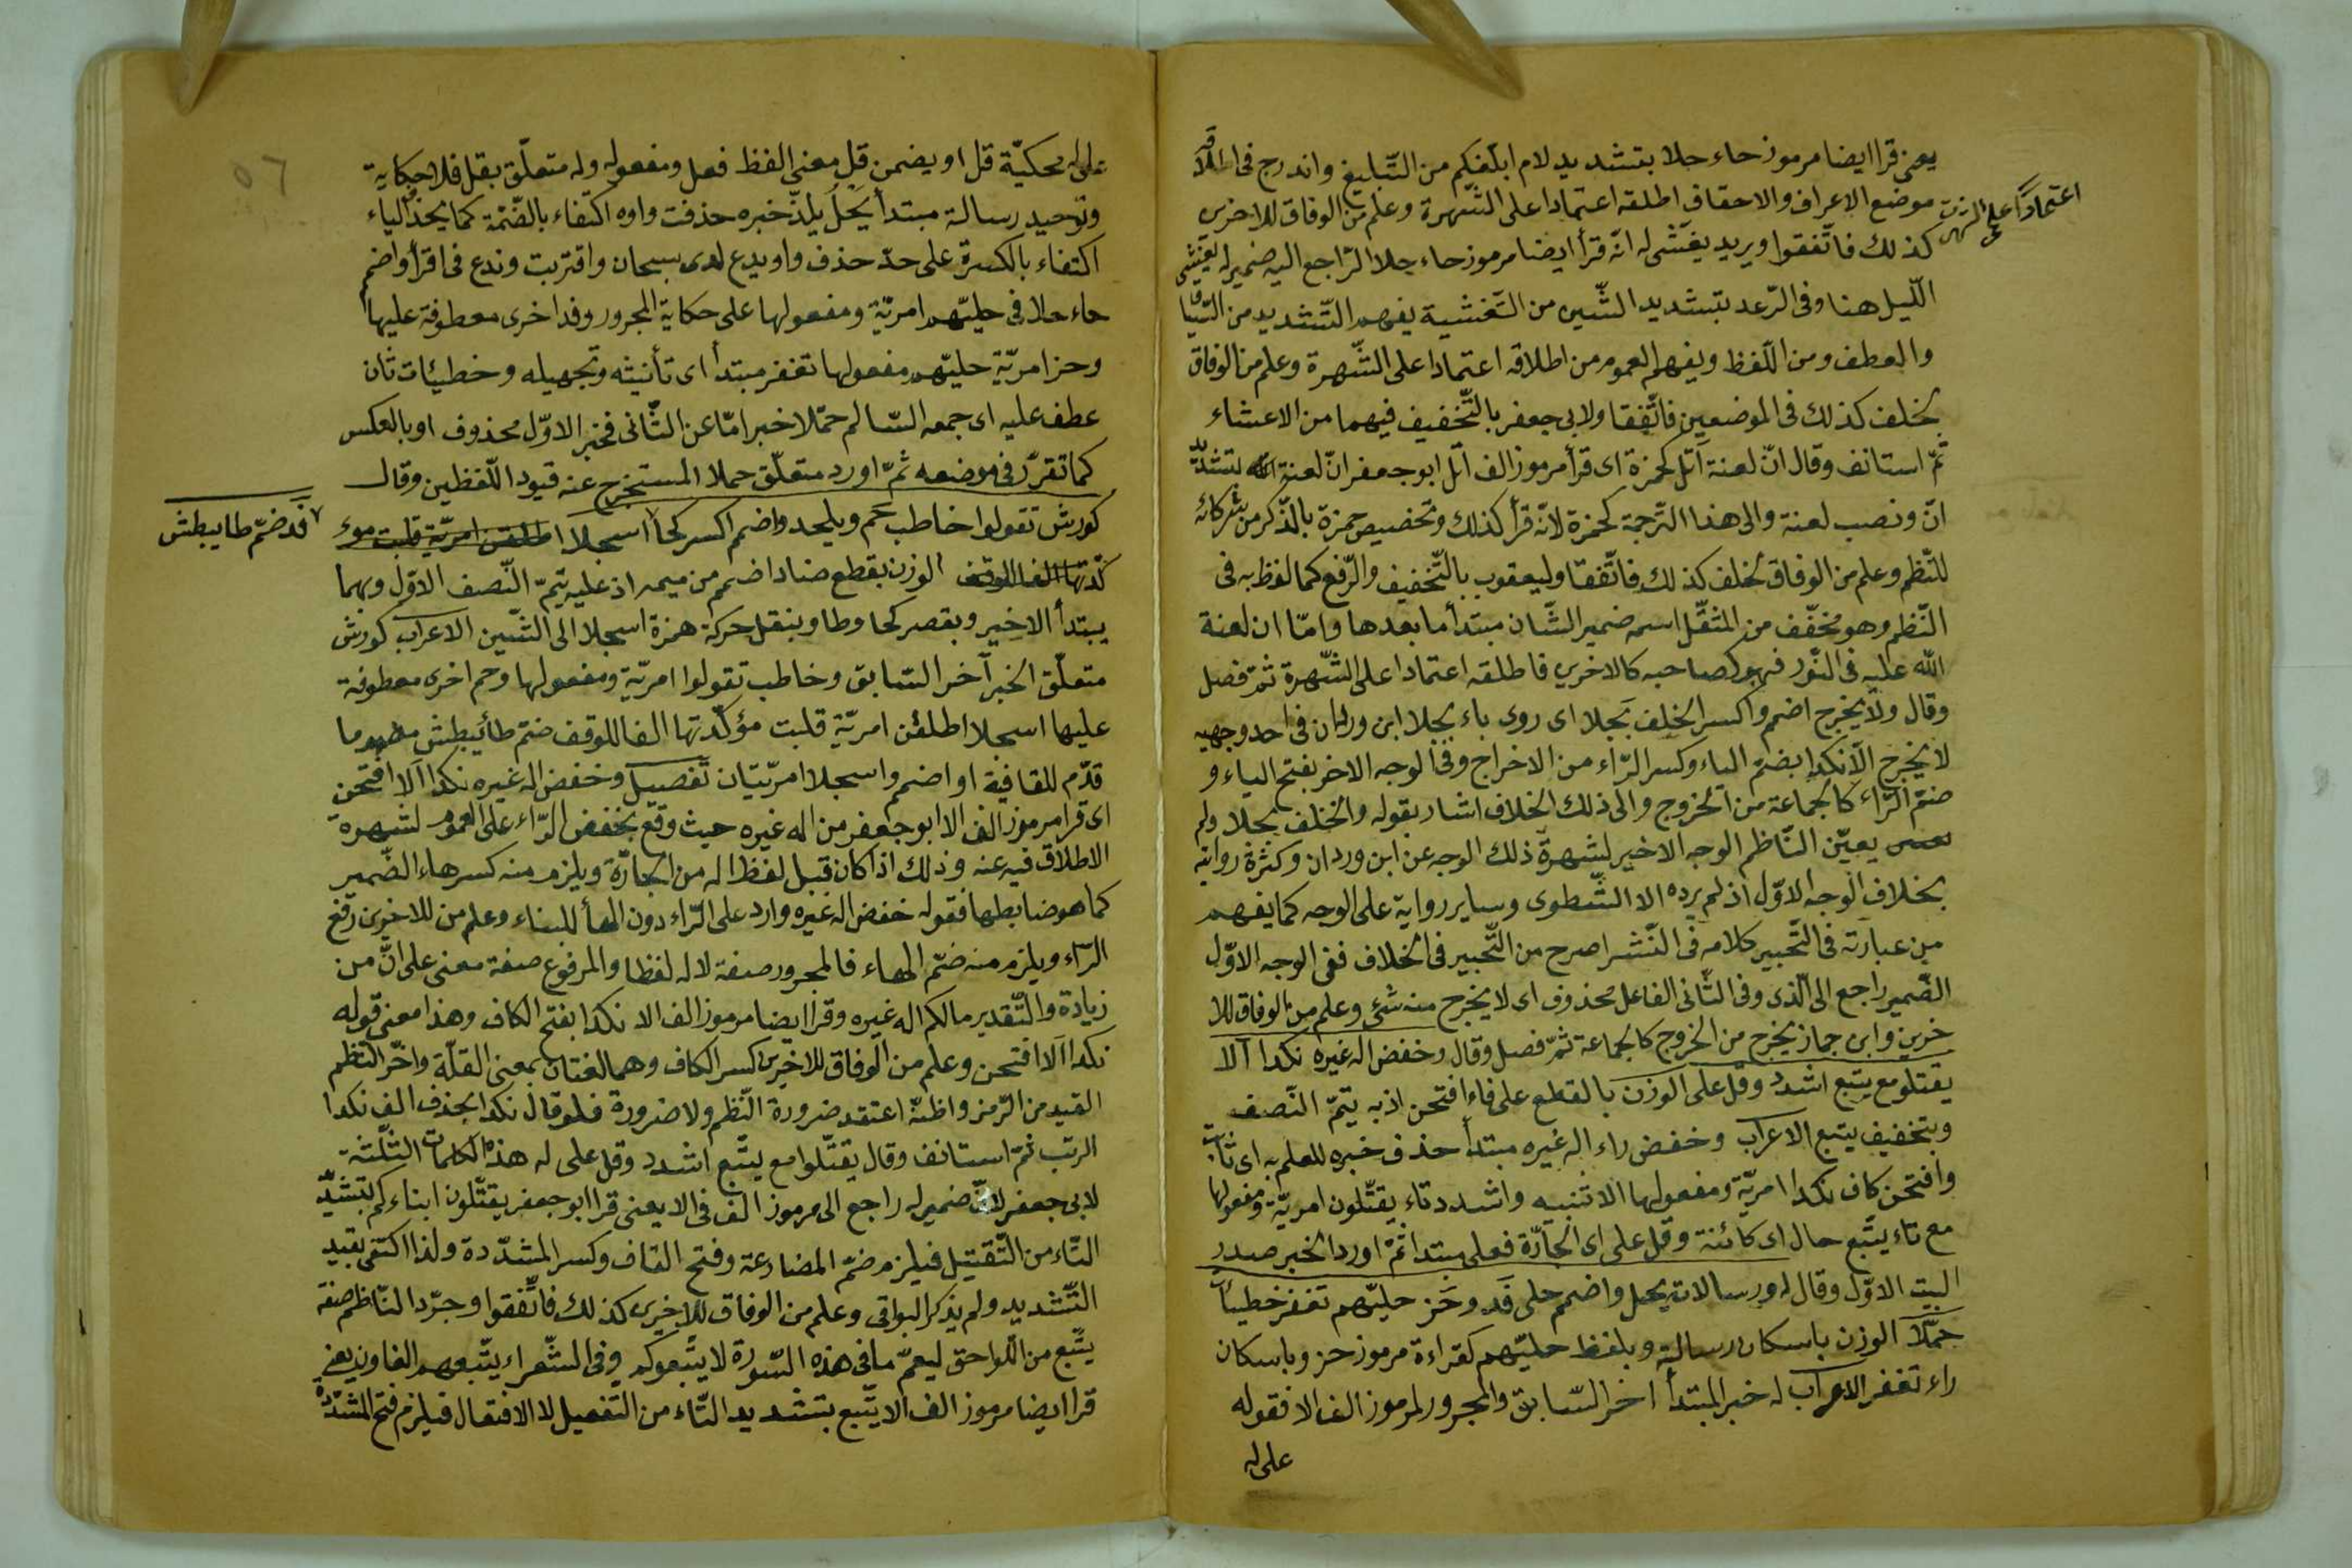 يعنى قرا ايضا مرموز حاء حلا بتشديد لام ابلغكم من التبليغ واندرج فى اطلاقه
موضع الاعراف والاحقاف اطلقه اعتمادا على الشهرة وعلم من الوفاق للاخرين
اعتمادا على الشهرة
كذلك فاتفقوا ويريد يغشى له انه قرأ ايضا مرموز حاء حلا الراجع اليه ضمير له يغشى
الليل هنا وفى الرعد بتشديد الشين من التغشية يفهم التشديد من السياق
والعطف ومن اللفظ ويفهم العموم من اطلاقه اعتمادا على الشهرة وعلم من الوفاق
لخلف كذلك فى الموضعين فاتفقا ولابى جعفر بالتخفيف فيهما من الاغشاء
ثم استانف وقال ان لعنة اتل كحمزة اى قرأ مرموز الف اتل ابو جعفر ان لعنة الله بتشديد
ان ونصب لعنة والى هذا الترجمة كحمزة لانه قرأ كذلك وتخصيص حمزة بالذكر من شركائه
للنظم وعلم من الوفاق لخلف كذلك فاتفقا وليعقوب بالتخفيف والرفع كما لفظ به فى
النظم وهو مخفف من المثقل اسمه ضمير الشان مبتدأ ما بعدها واما ان لعنة
الله عليه فى النور فهو كصاحبه كالاخرين فاطلقه اعتمادا على الشهرة ثم فصل
وقال ولا يخرج اضمم واكسر الخلف بجلا اى روى باء بجلا ابن وردان فى احد وجهيه
لا يخرج الا نكدا بضم الياء وكسر الراء من الاخراج وفى الوجه الاخر بفتح الياء و
ضم الراء كالجماعة من الخروج والى ذلك الخلاف اشار بقوله والخلف بجلا ولم
يعين الناظم الوجه الاخير لشهرة ذلك الوجه عن ابن وردان وكثرة رواته
بخلاف الوجه الاول اذ لم يرده الا الشطوى وساير رواية على الوجه كما يفهم
من عبارته فى التحبير كلامه فى النشر اصرح من التحبير فى الخلاف ففى الوجه الاول
الضمير راجع الى الذى وفى الثانى الفاعل محذوف اى لا يخرج منه شئ وعلم من الوفاق للا
خرين وابن جماز يخرج من الخروج كالجماعة ثم فصل وقال وخفض اله غيره نكدا الا
يقتلو مع يتبع اشدد وقل على الوزن بالقطع على فاء افتحن اذ به يتم النصف
وبتخفيف يتبع الاعراب وخفض راء اله غيره مبتدأ حذف خبره للعلم به اى ثابت
وافتحن كاف نكدا امرية ومفعولها الا تنبيه واشدد تاء يقتلون امرية ومفعولها
مع تاء يتبع حال اى كائنة وقل على اى الجارة فعلى مبتدا ثم اورد الخبر صدر
البيت الاول وقال له ورسالات يحل واضمم حلى قد وحز حليهم تغفر خطيأت
حملا الوزن باسكان رسالة وبلفظ حليهم كقراءة مرموز حز وباسكان
راء تغفر الاعراب له خبر المبتدأ اخر السابق والمجرور لمرموز الف الا فقوله
على له
على له محكية قل او يضمن قل معنى الفظ فعل ومفعوله وله متعلق بقل فلا حكاية
وتوحيد رسالة مبتدأ يحل يلذ خبره حذفت واوه اكتفاء بالضمة كما يحذف الياء
اكتفاء بالكسرة على حد حذف واو يدع لدى سبحان واقتربت وندع فى اقرأ واضمم
حاء حلا فى حليهم امرية ومفعولها على حكاية المجرور وفد اخرى معطوفة عليها
وحز امرية حليهم مفعولها تغفر مبتدأ اى تأنيثه وتجهيله وخطيئات ثان
عطف عليه اى جمعه السالم حملا خبر اما عن الثانى فخبر الاول محذوف او بالعكس
كما تقرر فى موضعه ثم اورد متعلق حملا المستخرج عنه قيود اللفظين وقال
كورش تقولوا خاطب حم ويلحد واضمم اكسر كحا اسجلا
قد ضم طا يبطش
الوزن بقطع ضاد اضمم من ميمه اذ عليه يتم النصف الاول وبهما
يبتدأ الاخير وبقصر كحا وطا وبنقل حركة همزة اسجلا الى الشين الاعراب كورش
متعلق الخبر آخر السابق وخاطب تقولوا امرية ومفعولها وحم اخرى معطوفة
عليها اسجلا اطلقن امرية قلبت مؤكدتها الفا للوقف ضم طا يبطش
قدم للقافية او اضمم واسجلا امريتان تفصيل وخفض اله غيره نكدا الا افتحن
اى قرا مرموز الف الا ابو جعفر من اله غيره حيث وقع بخفض الراء على العموم لشهرة
الاطلاق فيه عنه وذلك اذا كان قبل لفظ اله من الجارة ويلزم منه كسر هاء الضمير
كما هو ضابطها فقوله خفض اله غيره وارد على الراء دون الهاء للبناء وعلم من للاخرين رفع
الراء ويلزم منه ضم الهاء فالمجرور صفة لاله لفظا والمرفوع صفة معنى على ان من
زيادة والتقدير مالكم اله غيره وقرأ ايضا مرموز الف الا نكدا بفتح الكاف وهذا معنى قوله
نكدا الا افتحن وعلم من الوفاق للاخرين كسر الكاف وهما لغتان بمعنى القلة واخر الناظم
القيد من الرمز واظنه اعتقد ضرورة النظم ولا ضرورة فلو قال نكدا بحذف الف نكدا
الرتب ثم استانف وقال يقتلوا مع يتبع اشدد وقل على له هذه الكلمات الثلثة
لابى جعفر لان ضمير له راجع الى مرموز الف فى الا يعنى قرا ابو جعفر يقتلون ابناءكم بتشديد
التاء من التقتيل فيلزم ضم المضارعة وفتح القاف وكسر المشددة ولذا اكتفى بقيد
التشديد ولم يذكر البواقى وعلم من الوفاق للاخرين كذلك فاتفقوا وجرد الناظم صفة
يتبع من اللواحق ليعم ما فى هذه السورة لا يتبعوكم وفى الشعراء يتبعهم الغاون يعنى
قرا ايضا مرموز الف الا يتبع بتشديد التاء من التفعيل لا الافتعال فيلزم فتح المشددة